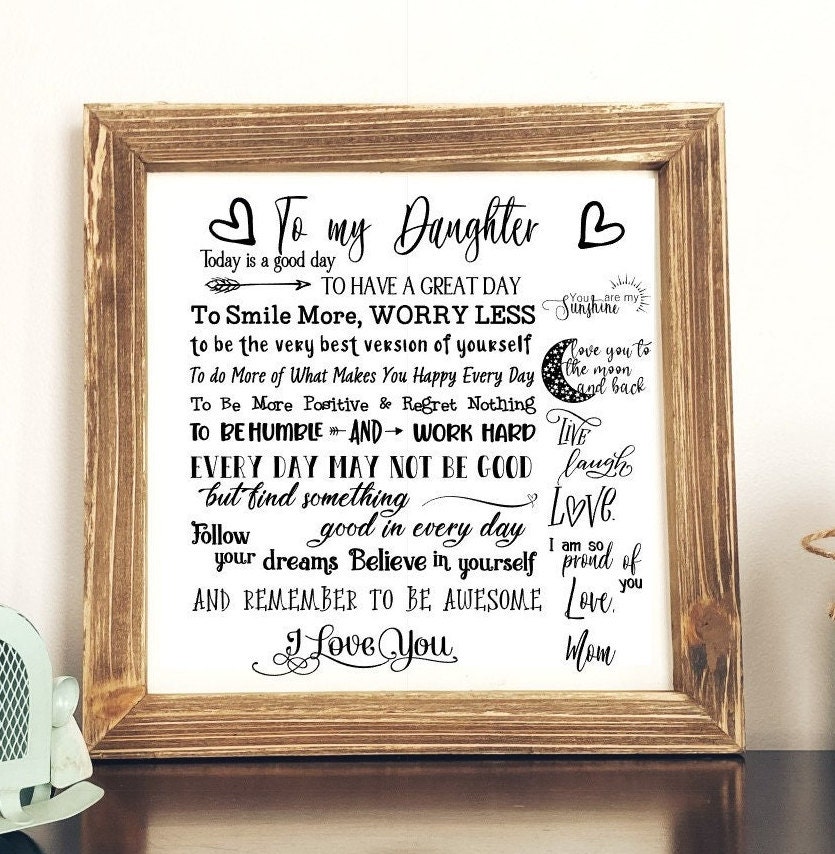 To my Daughter
Today is a good day
TO HAVE A GREAT DAY
To Smile More, WORRY LESS
to be the very best version of yourself
To do More of What Makes You Happy Every Day
To Be More Positive & Regret Nothing
TO BE HUMBLE AND WORK HARD
EVERY DAY MAY NOT BE GOOD
but find something
good in every day
Follow
your dreams Believe in yourself
AND REMEMBER TO BE AWESOME
I Love You
You are my
Sunshine
love you to
the moon
and back
LIVE
laugh
LOVE.
I am so
proud of
you
Love,
Mom